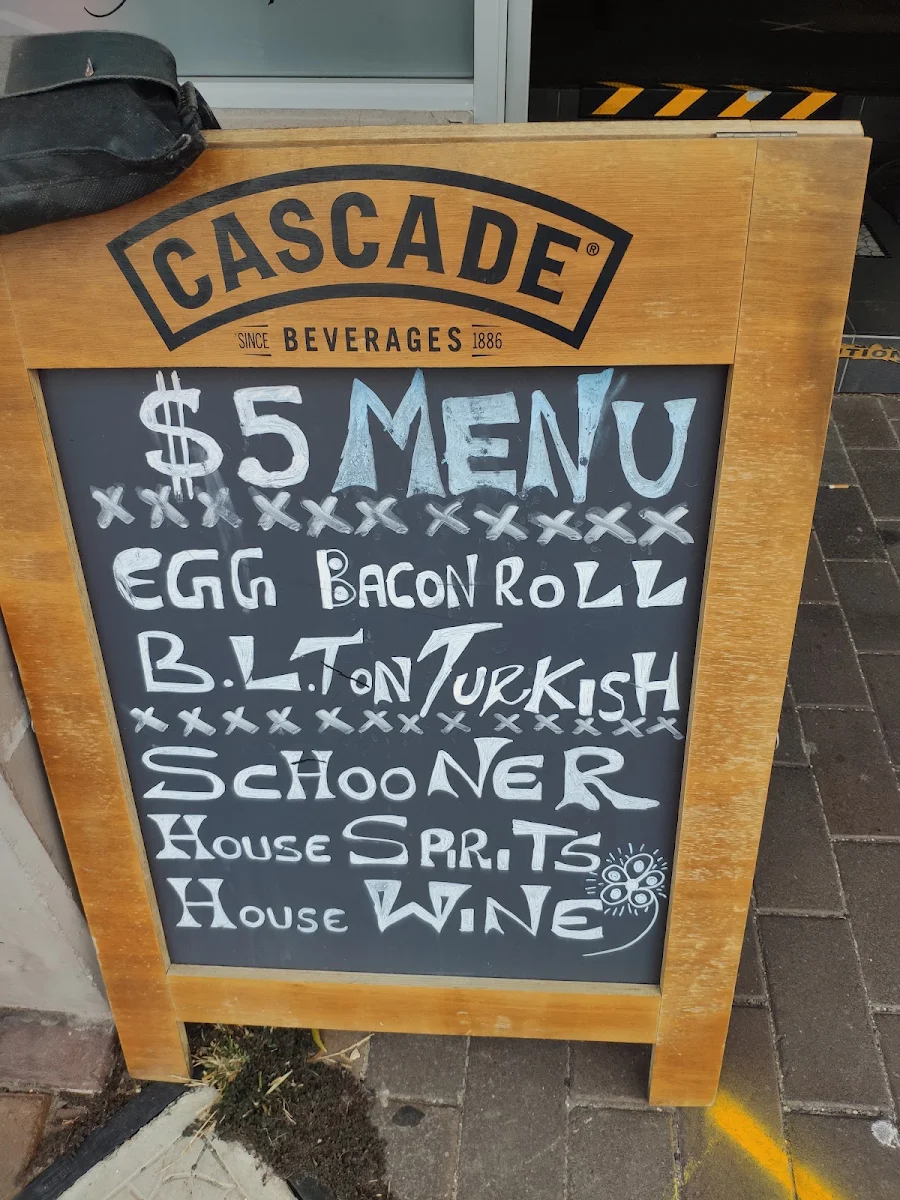 CASCADE®
SINCE BEVERAGES 1886
$5 MENU
XXXXXXXXXXX
EGG BACON ROLL
B.L.T. ON TURKISH
XXXXXXXXXXXX
SCHOONER
HOUSE SPIRITS
HOUSE WINE